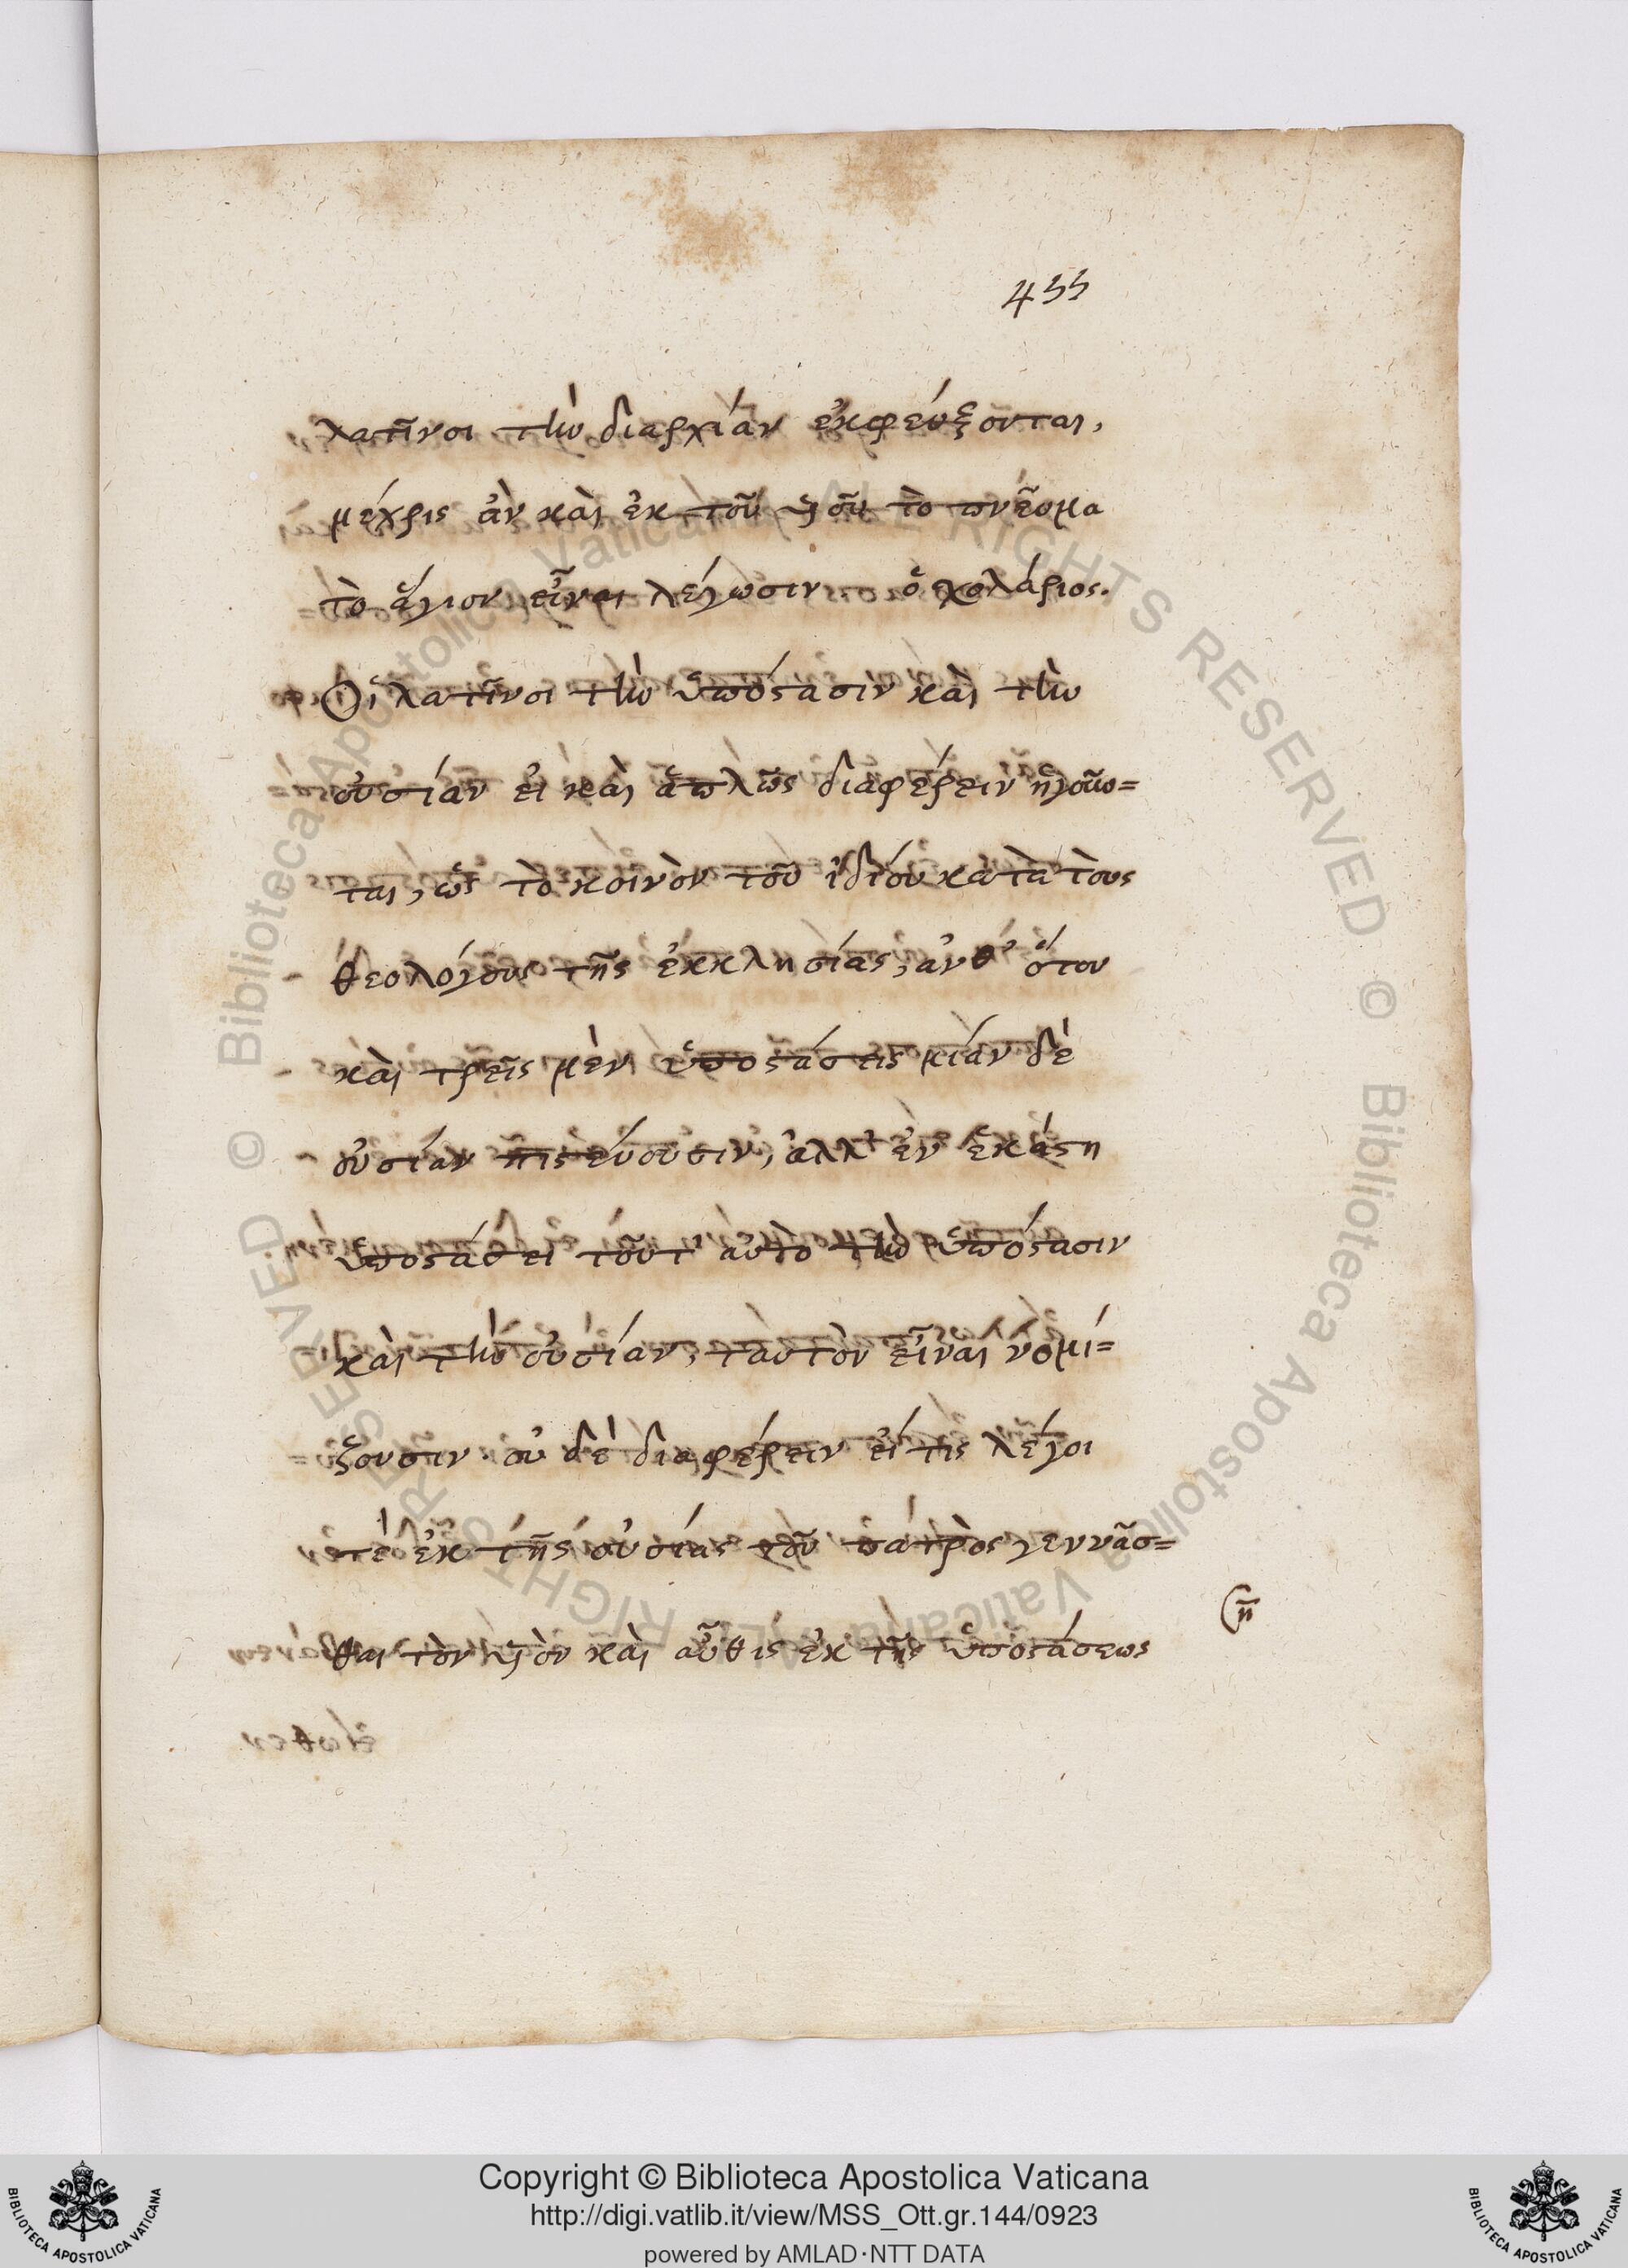 455
λατῖνοι τὴν διαρχίαν ἐκφεύξονται,
μέχρις ἀν καὶ ἐκ τοῦ υἱοῦ τὸ πνεῦμα
τὸ ἅγιον εἶναι λέγωσιν. ὁ σχολάριος.
Οἱ λατῖνοι τὴν ὑπόστασιν καὶ τὴν
οὐσίαν εἰ καὶ ἁπλῶς διαφέρειν ἡγοῦν=
ται, ὡς τὸ κοινὸν τοῦ ἰδίου κατὰ τοὺς
θεολόγους τῆς ἐκκλησίας, ἀνθ' ὅτου
καὶ τρεῖς μὲν ὑποστάσεις μίαν δὲ
οὐσίαν πιστεύουσιν, ἀλλ' ἐν ἑκάστη
ὑποστάσει τοῦτ' αὐτὸ τὴν ὑπόστασιν
καὶ τὴν οὐσίαν, ταὐτὸν εἶναι νομί=
ζουσιν. οὐ δὲ διαφέρειν εἴ τις λέγοι
τὲ ἐκ τῆς οὐσίας τοῦ πατρὸς γεννᾶσ=
θαι τὸν υἱὸν καὶ αὖθις ἐκ τῆς ὑποστάσεως
Copyright © Biblioteca Apostolica Vaticana
http://digi.vatlib.it/view/MSS_Ott.gr.144/0923
powered by AMLAD·NTT DATA
BIBLIOTECA APOSTOLICA VATICANA
BIBLIOTECA APOSTOLICA VATICANA
© Biblioteca Apostolica Vaticana ALL RIGHTS RESERVED © Biblioteca Apostolica Vaticana ALL RIGHTS RESERVED